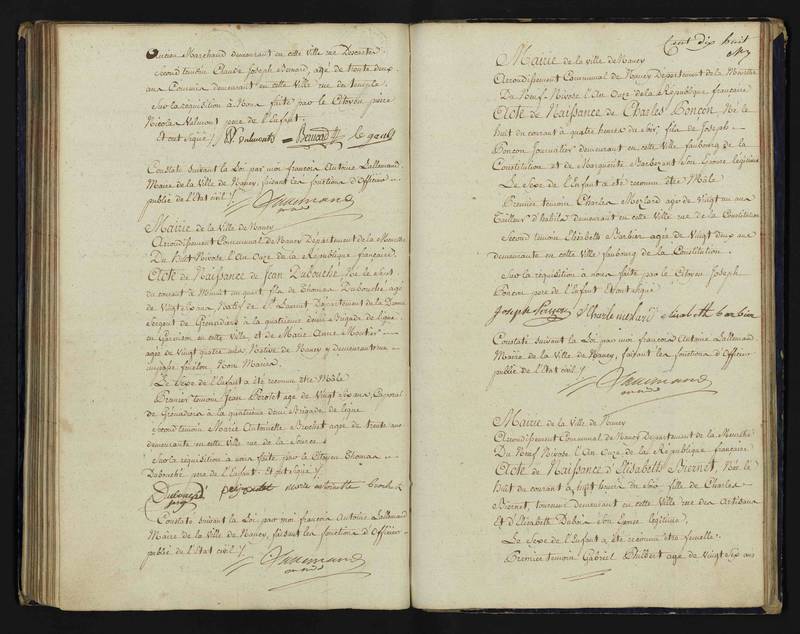 ancien Marchand demeurant en cette Ville rue Descartes
Second temoin Claude Joseph Bernard, agé de trente deux
ans Commis demeurant en cette Ville rue du temple.
Sur la requisition à Nous faite par le Citoyen
Nicolas Valmont pere de l'Enfant.
Et ont signé
Constaté suivant la Loi par moi françois Antoine Lallemand
Maire de la Ville de Nancy, faisant les fonctions d'Officier
public de l'Etat civil
Mairie de la Ville de Nancy
Arrondissement Communal de Nancy Département de la Meurthe
Du huit Nivose l'An Onze de la République française
Acte de Naissance de Jean Dubouché Né le Sept
du courant à Minuit un quart fils de Thomas Dubouché agé
de Vingt Six ans, Natif de St Laurent Département de la
Sergent de Grenadiers à la quatrieme demi Brigade de ligne
en Garnison en cette Ville, et de Marie Anne
agée de Vingt quatre ans, Native de Nancy y demeurante
Le Sexe de l'Enfant a été reconnu être Mâle
Premier temoin Jean Perolet agé de Vingt Six ans, Caporal
de Grenadiers à la quatrieme demi Brigade de ligne
Second temoin Marie Antoinette Brochet agée de trente ans
demeurante en cette Ville rue de la Source
Sur la requisition à nous faite par le Citoyen Thomas
Dubouché pere de l'Enfant. Et ont signé
Dubouché marie antoinette brochet
Constaté Suivant la Loi par moi françois Antoine Lallemand
Maire de la Ville de Nancy, faisant les fonctions d'Officier
public de l'Etat civil
Cent dix huit
Mairie de la Ville de Nancy
Arrondissement Communal de Nancy Département de la Meurthe
Du Neuf Nivose l'An Onze de la République française
Acte de Naissance de Charles Poncon, Né le
huit du courant à quatre heures du soir fils de Joseph
Poncon Journalier demeurant en cette Ville faubourg de la
Constitution et de Marguerite Son Epouse legitime
Le Sexe de l'Enfant a été reconnu être Mâle
Premier temoin Charles agé de Vingt un ans
Tailleur d'habits demeurant en cette Ville rue de la Constitution
Second temoin Elisabeth Barbier agée de Vingt deux ans
demeurante en cette Ville faubourg de la Constitution.
Sur la requisition à nous faite par le Citoyen Joseph
Poncon pere de l'Enfant Et ont signé
Joseph elisabeth barbier
Constaté suivant la Loi par moi françois Antoine Lallemand
Maire de la Ville de Nancy, faisant les fonctions d'Officier
public de l'Etat civil
Mairie de la Ville de Nancy
Arrondissement Communal de Nancy Département de la Meurthe
Du Neuf Nivose l'An Onze de la République française
Acte de Naissance d'Elisabeth Biernet, Née le
huit du courant à sept heures du soir fille de Charles
Biernet, tourneur demeurant en cette Ville rue des Artisans
et d'Elisabeth Dubois son Epouse legitime
Le Sexe de l'Enfant a été reconnu être femelle
Premier temoin Gabriel Philbert agé de Vingt Six ans